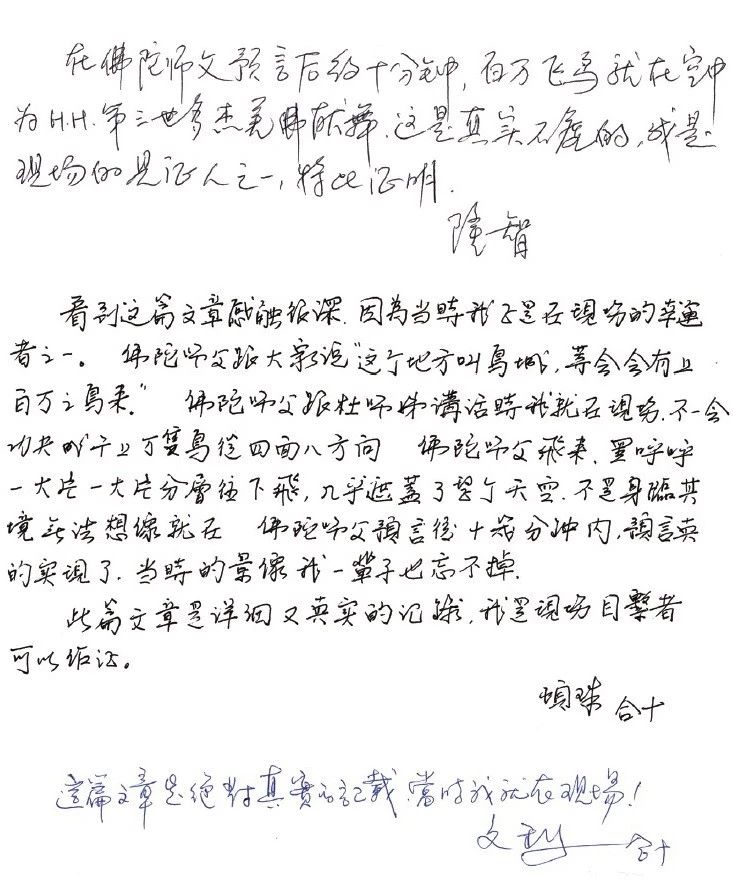 在佛陀师父預言后约十分钟, 百万飞鸟就在空中
为H.H.第三世多杰羌佛献舞. 这是真实不虚的, 我是
現场的見证人之一, 特此证明.
隆智
看到这篇文章感触很深. 因為当時我正是在現場的幸運
者之一。 佛陀师父跟大家説"这个地方叫鳥城, 等会会有上
百万之鳥来." 佛陀师父跟杜师姊講话時我就在現場. 不一会
功夫成千上万隻鳥從四面八方向 佛陀师父飛来, 黑呼呼
一大片一大片分層往下飛, 几乎遮蓋了整个天空. 不是身臨其
境無法想像就在 佛陀师父預言後十幾分钟内, 預言真
的实現了. 当時的景像我一輩子也忘不掉.
此篇文章是详细又真实的记録, 我是現場目擊者
可以作证。
珠 合十
這篇文章是絕對真實的記載, 當时我就在現場!
文 合十